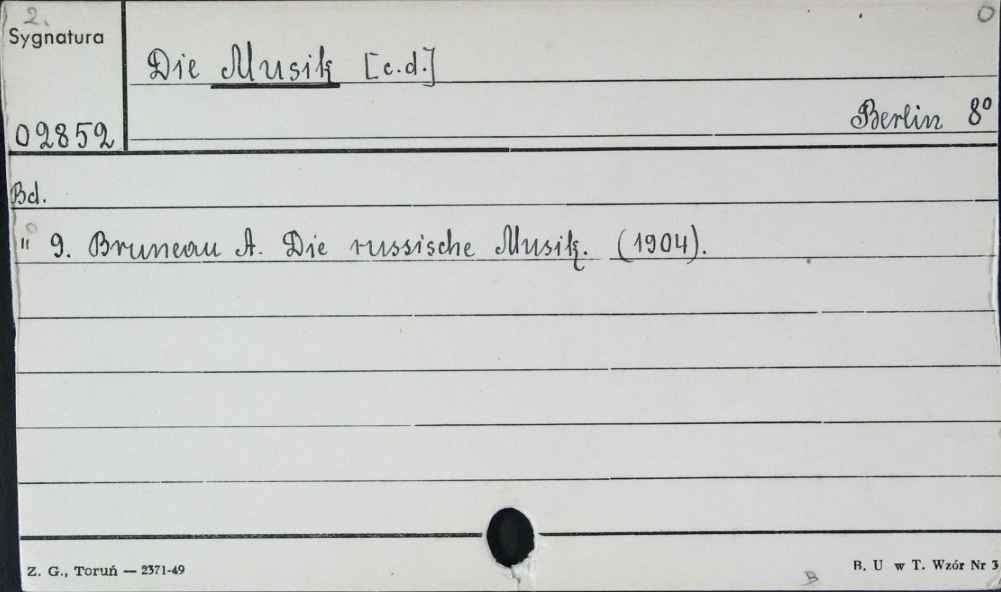 2. O
Sygnatura
Die Musik [c.d.]
Berlin 8°
02852
Bd.
" 9. Bruneau A. Die russische Musik. (1904).
Z. G., Toruń — 2371-49
B. U w T. Wzór Nr 3
B